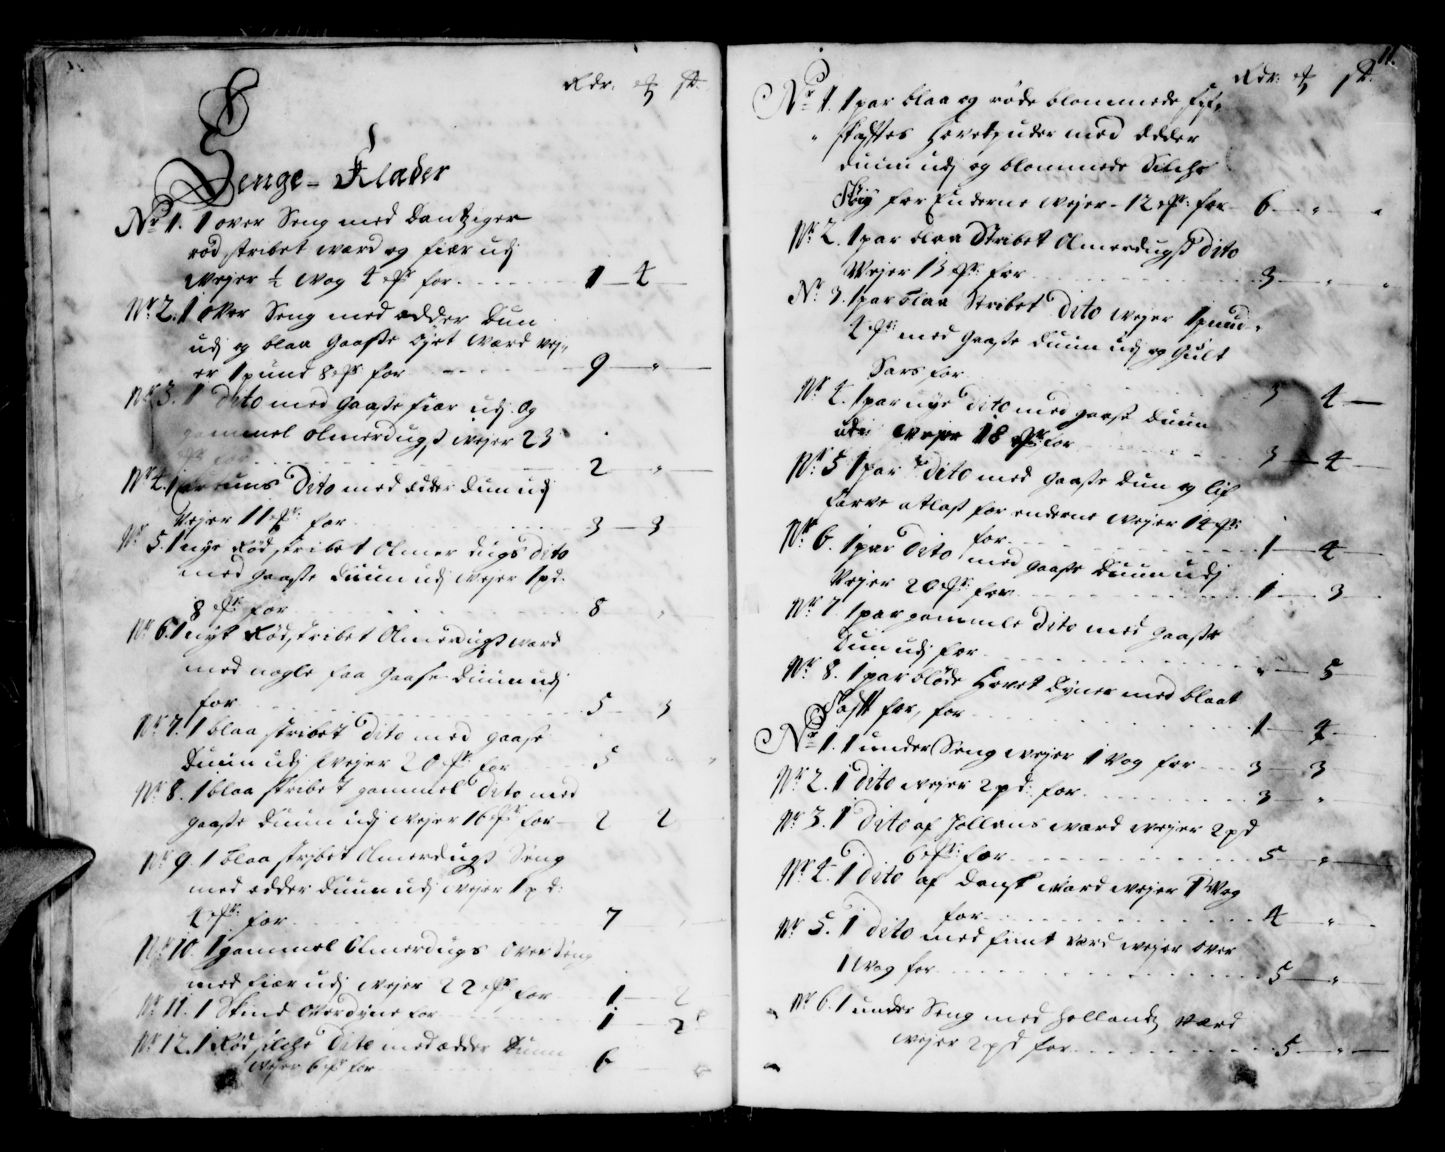 Rdr: ß
Senge-Klæder
No 1. 1 over Seng med Dantziger
rød stribet waard og fiær udj
wejer ½ wog 4 for 1 4
Nr 2. 1 over Seng med edder Duun
udj og blaa Gaasse Øyet waard wej-
er 1 pund 8 for 9 "
Nr 3. 1 dito med Gaasse fiær udj og
gammel olmerdugs wejer 23
2 "
Nr 4. dito med edder duun udj
wejer 11 for 3 3
Nr 5. 1 nye Rød stribet olmer dugs dito
med Gaasse duun udj wejer 1 pd:
8 for 8 "
Nr 6. 1 nyt Rød stribet Olmerdugs waard
med nogle faa Gaase duun udj
for 5 3
Nr 7. 1 blaa stribet dito med Gaase
Duun udj wejer 20 for 5 " "
Nr 8. 1 blaa stribet gammel dito med
gaasse duun udj wejer 16 for 2 2
Nr 9. 1 blaa stribet Olmerdugs Seng
med edder duun udj wejer 1 pd:
4 for 7
Nr 10. 1 gammel Olmerdugs over Seng
med fiær udj wejer 22 for 1 2
Nr 11. 1 Skind overdyne for 1 2
Nr 12. 1 Rød silche dito med edder Duun
wejer 6 for 6
11.
Rdr: ß
No 1. 1 par blaa og røde blommede
Hovetpuder med Edder
duun udj og blommede Silche
tøy for Enderne wejer 12 for 6 " "
Nr 2. 1 par blaa Stribet Olmerdugs dito
wejer 13 for 3 " "
Nr 3. 1 par blaa Stribet dito wejer 1 pund
4 med Gaasse duun udj og Guld
Sars for 3 4
Nr 4. 1 par nye dito med gaasse duun
udi wejer 18 for 3 4
Nr 5. 1 par dito med Gaasse dun og lif
farve atlask for enderne wejer 14
for 1 4
Nr 6. 1 par dito med Gaasse duun udj
wejer 20 for 1 3
Nr 7. 1 par gammle dito med Gaasse
duun udj for " 5
Nr 8. 1 par bløde Hovet dyner med blaat
for, for 1 4
No 1. 1 under Seng wejer 1 wog for 3 3
Nr 2. 1 dito wejer 2 pd: for 3 "
Nr 3. 1 dito af Hollans waard wejer 2 pd
6 for 5 "
Nr 4. 1 dito af Dansk waard wejer 1 wog
for 4 "
Nr 5. 1 dito med fiint vaard wejer over
1 wog for 5 "
Nr 6. 1 under Seng med Hollandz waard
wejer 2 pd for 5 "